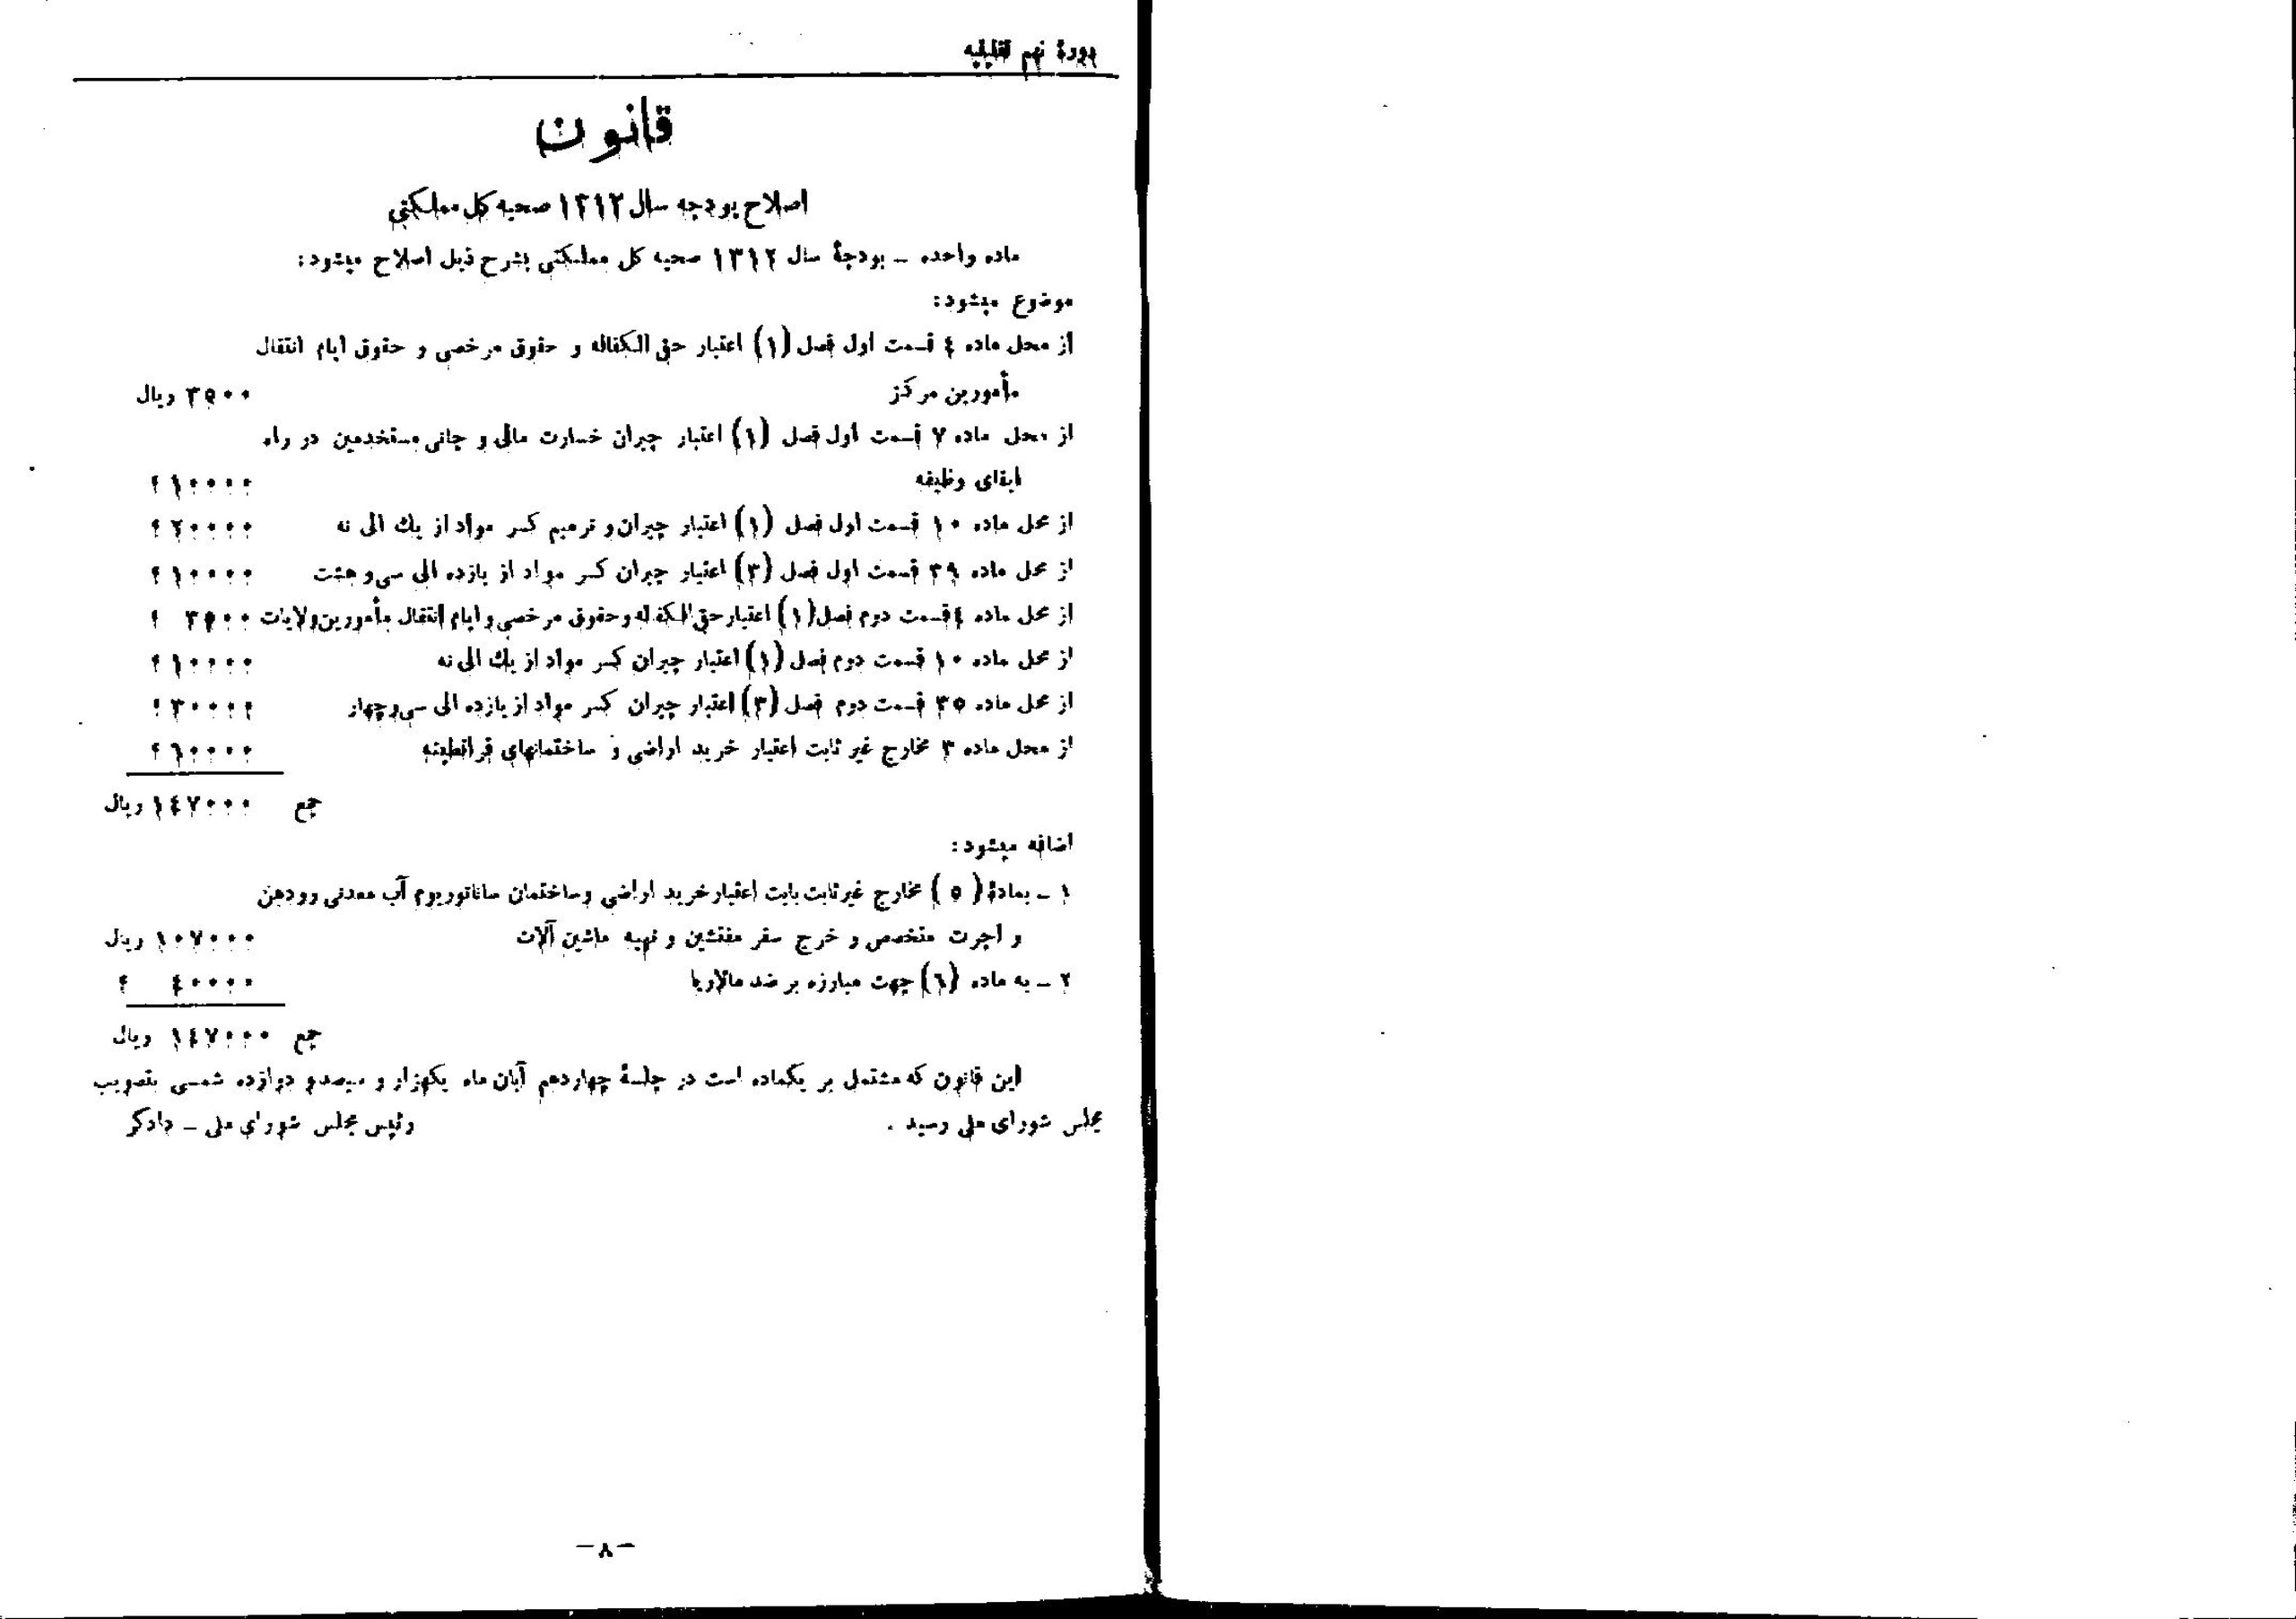 دورهٔ نهم تقنینیه
قانون
اصلاح بودجه سال ۱۳۱۲ صحیه کل مملکتی
ماده واحده – بودجهٔ سال ۱۳۱۲ صحیه کل مملکتی بشرح ذیل اصلاح میشود:
موضوع میشود:
از محل ماده ٤ قسمت اول فصل (۱) اعتبار حق الکفاله و حقوق مرخصی و حقوق ایام انتقال
مأمورین مرکز ۳۵۰۰ ریال
از محل ماده ۷ قسمت اول فصل (۱) اعتبار جبران خسارت مالی و جانی مستخدمین در راه
ایفای وظیفه ۱۰۰۰۰ ؛
از محل ماده ۱۰ قسمت اول فصل (۱) اعتبار جبران و ترمیم کسر مواد از یك الی نه ۲۰۰۰۰ ؛
از محل ماده ۳۹ قسمت اول فصل (۳) اعتبار جبران کسر مواد از یازده الی سی و هشت ۱۰۰۰۰ ؛
از محل ماده ٤ قسمت دوم فصل (۱) اعتبار حق الکفاله و حقوق مرخصی و ایام انتقال مأمورین ولایات ۳۵۰۰ ؛
از محل ماده ۱۰ قسمت دوم فصل (۱) اعتبار جبران کسر مواد از یك الی نه ۱۰۰۰۰ ؛
از محل ماده ۳۵ قسمت دوم فصل (۳) اعتبار جبران کسر مواد از یازده الی سی و چهار ۳۰۰۰۰ ؛
از محل ماده ۳ مخارج غیر ثابت اعتبار خرید اراضی و ساختمانهای قرانطینه ٦۰۰۰۰ ؛
جمع ۱٤۷۰۰۰ ریال
اضافه میشود:
۱ – بمادهٔ (۵) مخارج غیر ثابت بابت اعتبار خرید اراضی و ساختمان ساناتوریوم آب معدنی رودهن
و اجرت متخصص و خرج سفر مفتشین و تهیه ماشین آلات ۱۰۷۰۰۰ ریال
۲ – به ماده (٦) جهت مبارزه بر ضد مالاریا ٤۰۰۰۰ ؛
جمع ۱٤۷۰۰۰ ریال
این قانون که مشتمل بر یکماده است در جلسهٔ چهاردهم آبان ماه یکهزار و سیصد و دوازده شمسی بتصویب
مجلس شورای ملی رسید . رئیس مجلس شورای ملی – دادگر
–۸–